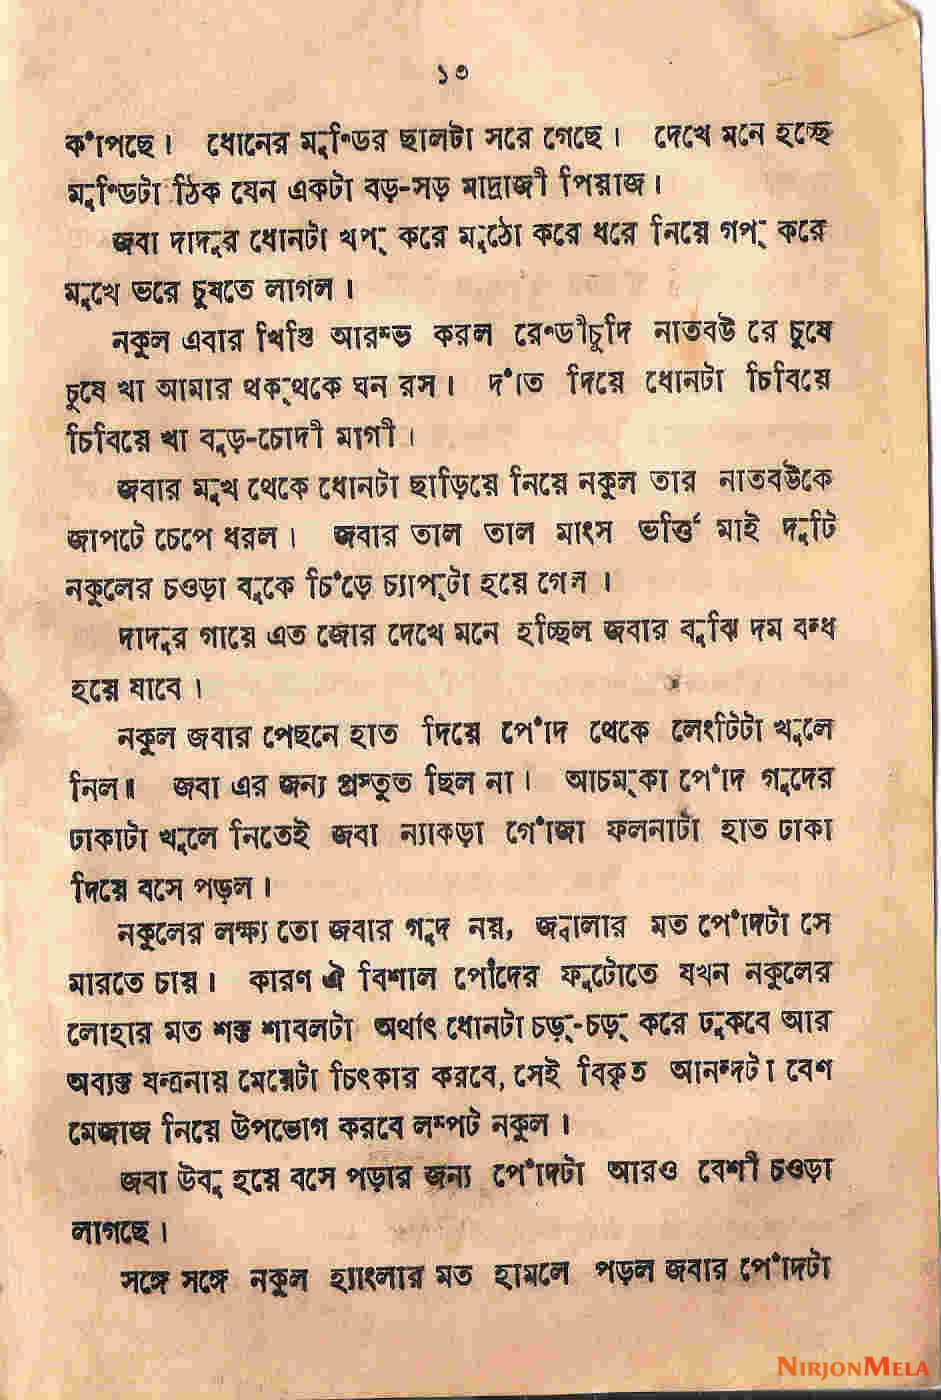 ১৩
কাঁপছে। ধোনের মুণ্ডির ছালটা সরে গেছে। দেখে মনে হচ্ছে
মুণ্ডিটা ঠিক যেন একটা বড়-সড় মাদ্রাজী পিয়াজ।
জবা দাদুর ধোনটা খপ্ করে মুঠো করে ধরে নিয়ে গপ্ করে
মুখে ভরে চুষতে লাগল।
নকুল এবার খিস্তি আরম্ভ করল রেণ্ডীচূদি নাতবউ রে চুষে
চুষে খা আমার থক্থকে ঘন রস। দাঁত দিয়ে ধোনটা চিবিয়ে
চিবিয়ে খা বুড়-চোদী মাগী।
জবার মুখ থেকে ধোনটা ছাড়িয়ে নিয়ে নকুল তার নাতবউকে
জাপটে চেপে ধরল। জবার তাল তাল মাংস ভর্ত্তি মাই দুটি
নকুলের চওড়া বুকে চিঁড়ে চ্যাপ্টা হয়ে গেল।
দাদুর গায়ে এত জোর দেখে মনে হচ্ছিল জবার বুঝি দম বন্ধ
হয়ে যাবে।
নকুল জবার পেছনে হাত দিয়ে পোঁদ থেকে লেংটিটা খুলে
নিল॥ জবা এর জন্য প্রস্তুত ছিল না। আচম্কা পোঁদ গুদের
ঢাকাটা খুলে নিতেই জবা ন্যাকড়া গোঁজা ফলনাটা হাত ঢাকা
দিয়ে বসে পড়ল।
নকুলের লক্ষ্য তো জবার গুদ নয়, জ্বালার মত পোঁদটা সে
মারতে চায়। কারণ ঐ বিশাল পোঁদের ফুটোতে যখন নকুলের
লোহার মত শক্ত শাবলটা অর্থাৎ ধোনটা চড়্-চড়্ করে ঢুকবে আর
অব্যক্ত যন্ত্রনায় মেয়েটা চিৎকার করবে, সেই বিকৃত আনন্দটা বেশ
মেজাজ নিয়ে উপভোগ করবে লম্পট নকুল।
জবা উবু হয়ে বসে পড়ার জন্য পোঁদটা আরও বেশী চওড়া
লাগছে।
সঙ্গে সঙ্গে নকুল হ্যাংলার মত হামলে পড়ল জবার পোঁদটা
NIRJONMELA